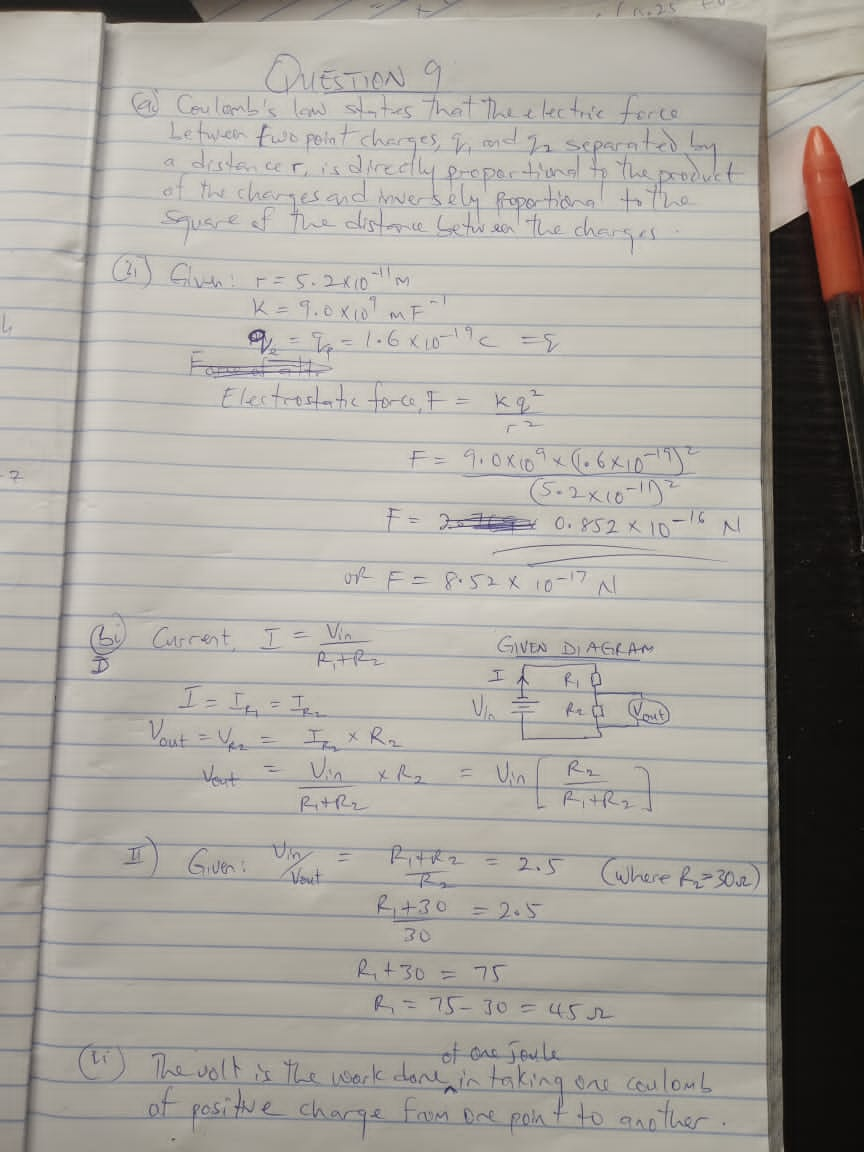 QUESTION 9
(a) Coulomb's law states that the electric force
between two point charges, q₁ and q₂ separated by
a distance r, is directly proportional to the product
of the charges and inversely proportional to the
square of the distance between the charges.
(ii) Given: r = 5.2×10⁻¹¹ m
K = 9.0×10⁹ mF⁻¹
qₑ = qₚ = 1.6×10⁻¹⁹ C = q
Electrostatic force, F = Kq²/r²
F = 9.0×10⁹ × (1.6×10⁻¹⁹)²/(5.2×10⁻¹¹)²
F = 0.852 × 10⁻¹⁶ N
or F = 8.52 × 10⁻¹⁷ N
(bi) Current, I = Vin/R₁+R₂
I)
GIVEN DIAGRAM
I R₁
Vin R₂ Vout
I = I_R₁ = I_R₂
Vout = V_R₂ = I_R₂ × R₂
Vout = Vin/R₁+R₂ × R₂ = Vin [R₂/R₁+R₂]
II) Given: Vin/Vout = R₁+R₂/R₂ = 2.5 (where R₂=30Ω)
R₁+30/30 = 2.5
R₁+30 = 75
R₁ = 75-30 = 45Ω
of one joule
(ii) The volt is the work done ^ in taking one coulomb
of positive charge from one point to another.